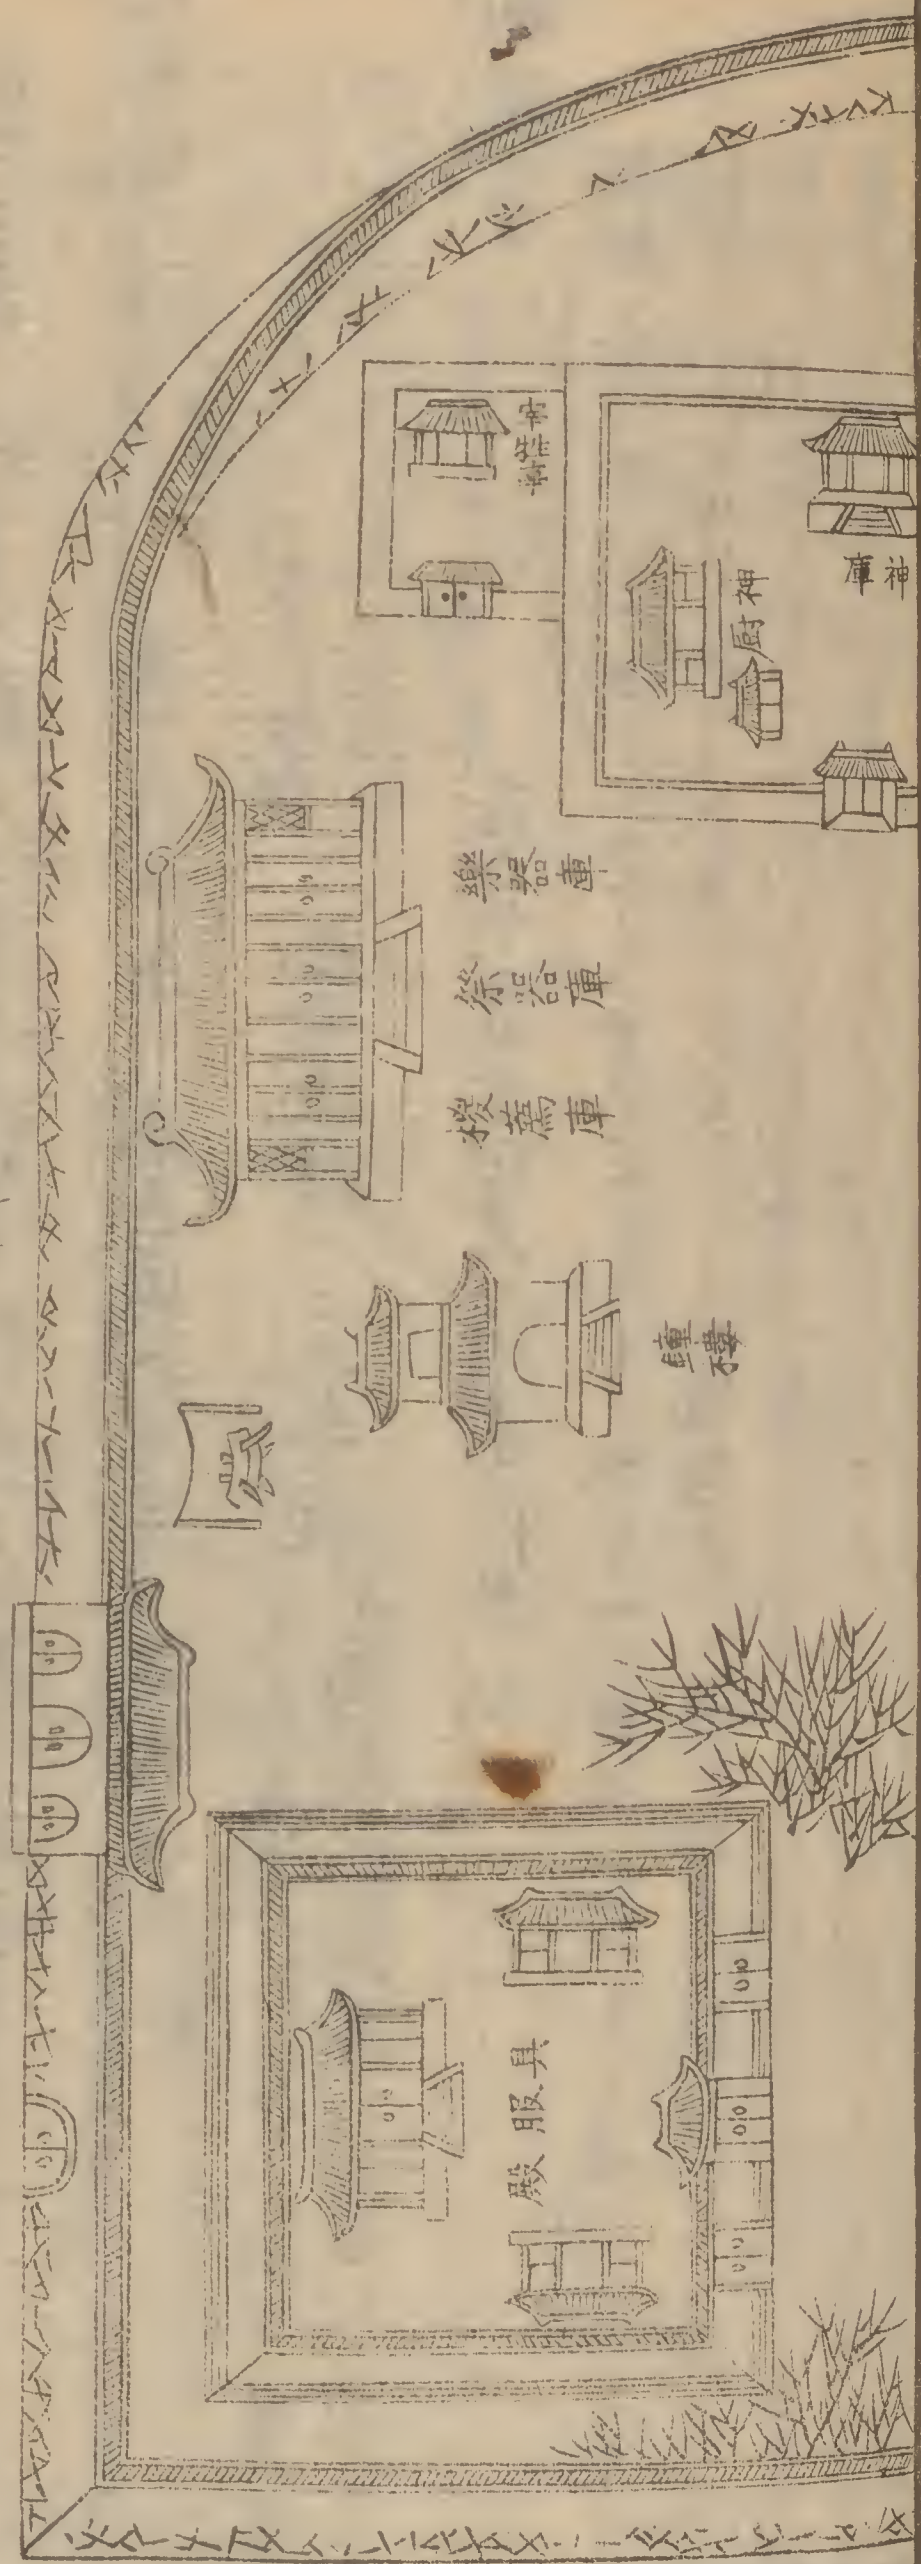 宰牲亭
神庫
神厨
樂器庫
祭器庫
椶薦庫
鐘樓
具服殿